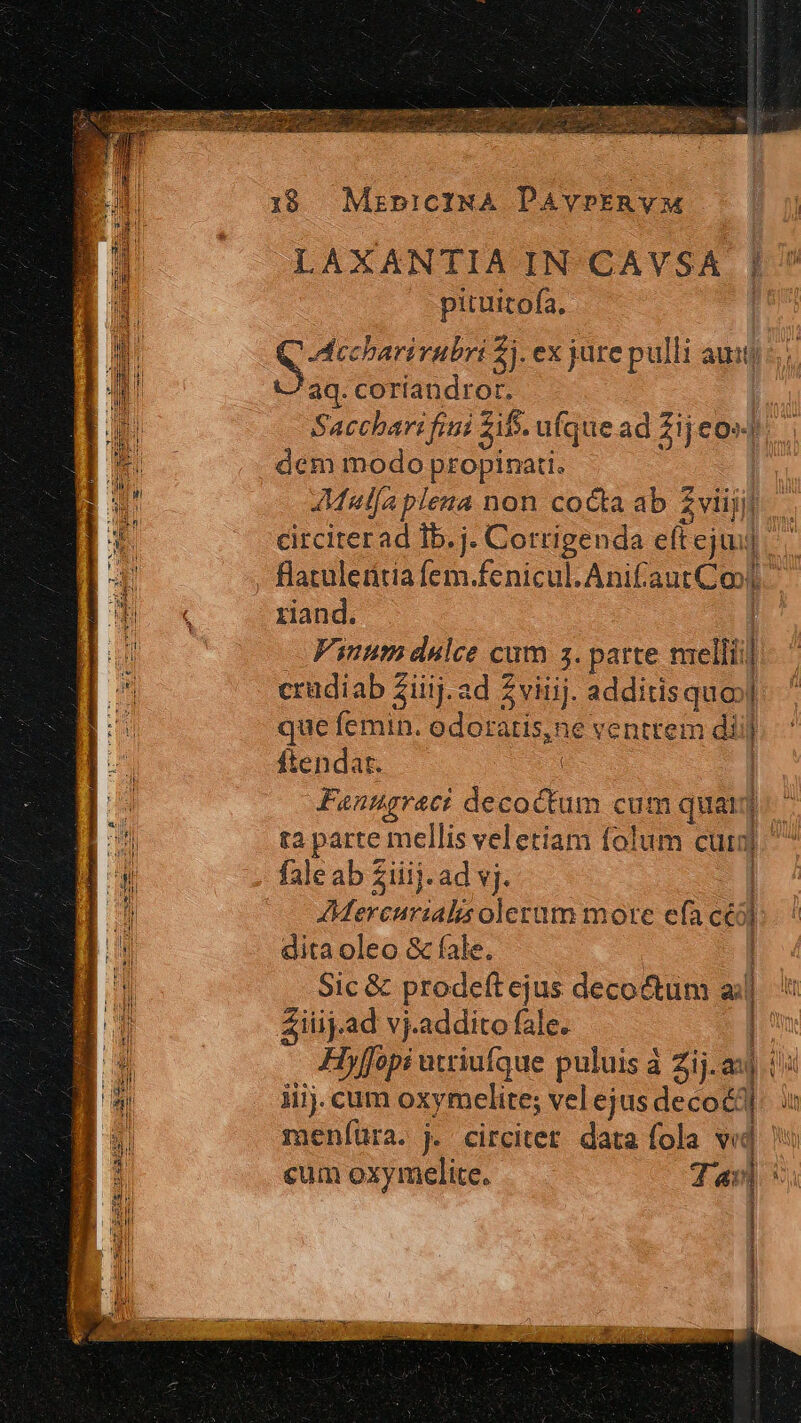 18 MEDICINA PAVPERVM
LAXANTIA IN CAVSA
pituitoſa.
SAccharirubri ℥j. ex jure pulli aut
aq. coriandror.
Sacchari fini ℥iß. uſque ad ℥ij eo-
dem modo propinati.
Mulſa plena non cocta ab ℥viiij
circiter ad ℔. j. Corrigenda eſt ejus
flatulentia ſem. fenicul. Aniſ aut Co-
riand.
Vinum dulce cum 3. parte mellis
crudi ab ℥iiij. ad ℥viiij. additis quo-
que ſemin. odoratis, ne ventrem di-
ſtendat.
Fænugræci decoctum cum quar-
ta parte mellis vel etiam ſolum cum
ſale ab ℥iiij. ad vj.
Mercurialis olerum more eſa cō-
dita oleo & ſale.
Sic & prodeſt ejus decoctum a
℥iiij. ad vj. addito ſale.
Hyſſopi utriuſque puluis à ʒij. a
iiij. cum oxymelite; vel ejus decoct
menſura. j. circiter data ſola v
cum oxymelite.